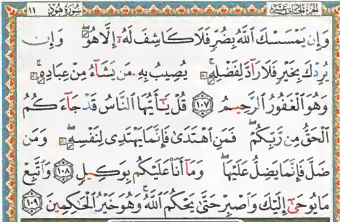 ١١ الجزء الحادي عشر سورة هود
وَإِن يَمْسَسْكَ ٱللَّهُ بِضُرٍّ فَلَا كَاشِفَ لَهُۥٓ إِلَّا هُوَ ۖ وَإِن
يُرِدْكَ بِخَيْرٍ فَلَا رَآدَّ لِفَضْلِهِۦ ۚ يُصِيبُ بِهِۦ مَن يَشَآءُ مِنْ عِبَادِهِۦ ۚ
وَهُوَ ٱلْغَفُورُ ٱلرَّحِيمُ ١٠٧ قُلْ يَـٰٓأَيُّهَا ٱلنَّاسُ قَدْ جَآءَكُمُ
ٱلْحَقُّ مِن رَّبِّكُمْ ۖ فَمَنِ ٱهْتَدَىٰ فَإِنَّمَا يَهْتَدِى لِنَفْسِهِۦ ۖ وَمَن
ضَلَّ فَإِنَّمَا يَضِلُّ عَلَيْهَا ۖ وَمَآ أَنَا۠ عَلَيْكُم بِوَكِيلٍ ١٠٨ وَٱتَّبِعْ
مَا يُوحَىٰٓ إِلَيْكَ وَٱصْبِرْ حَتَّىٰ يَحْكُمَ ٱللَّهُ ۚ وَهُوَ خَيْرُ ٱلْحَـٰكِمِينَ ١٠٩